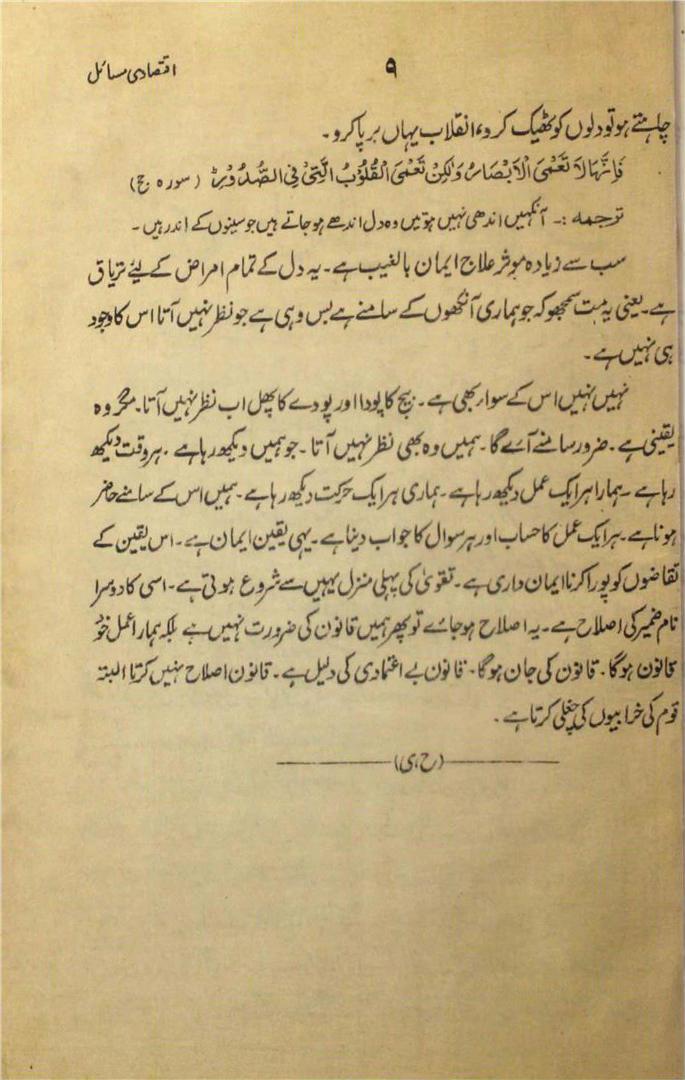 اقتصادی مسائل
۹
چاہتے ہو تو دلوں کو ٹھیک کرو، انقلاب یہاں برپا کرو۔
فَاِنَّهَا لَا تَعْمَى الْاَبْصَارُ وَلٰكِنْ تَعْمَى الْقُلُوْبُ الَّتِىْ فِى الصُّدُوْرِ ط (سورہ حج)
ترجمہ :۔ آنکھیں اندھی نہیں ہوتیں وہ دل اندھے ہو جاتے ہیں جو سینوں کے اندر ہیں۔
سب سے زیادہ موثر علاج ایمان بالغیب ہے۔ یہ دل کے تمام امراض کے لیٔے تریاق
ہے۔ یعنی یہ مت سمجھو کہ جو ہماری آنکھوں کے سامنے ہے بس وہی ہے جو نظر نہیں آتا اس کا وجود
ہی نہیں ہے۔
نہیں نہیں اس کے سوا ر بھی ہے۔ بیج کا پودا اور پودے کا پھل اب نظر نہیں آتا۔ مگر وہ
یقینی ہے۔ ضرور سامنے آے گا۔ ہمیں وہ بھی نظر نہیں آتا۔ جو ہمیں دیکھ رہا ہے۔ ہر وقت دیکھ
رہا ہے۔ ہمارا ہر ایک عمل دیکھ رہا ہے۔ ہماری ہر ایک حرکت دیکھ رہا ہے۔ ہمیں اس کے سامنے حاضر
ہونا ہے۔ ہر ایک عمل کا حساب اور ہر سوال کا جواب دینا ہے۔ یہی یقین ایمان ہے۔ اس یقین کے
تقاضوں کو پورا کرنا ایمان داری ہے۔ تقویٰ کی پہلی منزل یہیں سے شروع ہوتی ہے۔ اسی کا دوسرا
نام ضمیر کی اصلاح ہے۔ یہ اصلاح ہو جاے تو پھر ہمیں قانون کی ضرورت نہیں ہے بلکہ ہمارا عمل خود
قانون ہوگا۔ قانون کی جان ہوگا۔ قانون بے اعتمادی کی دلیل ہے۔ قانون اصلاح نہیں کرتا البتہ
قوم کی خرابیوں کی چغلی کرتا ہے۔
(ح، ی)